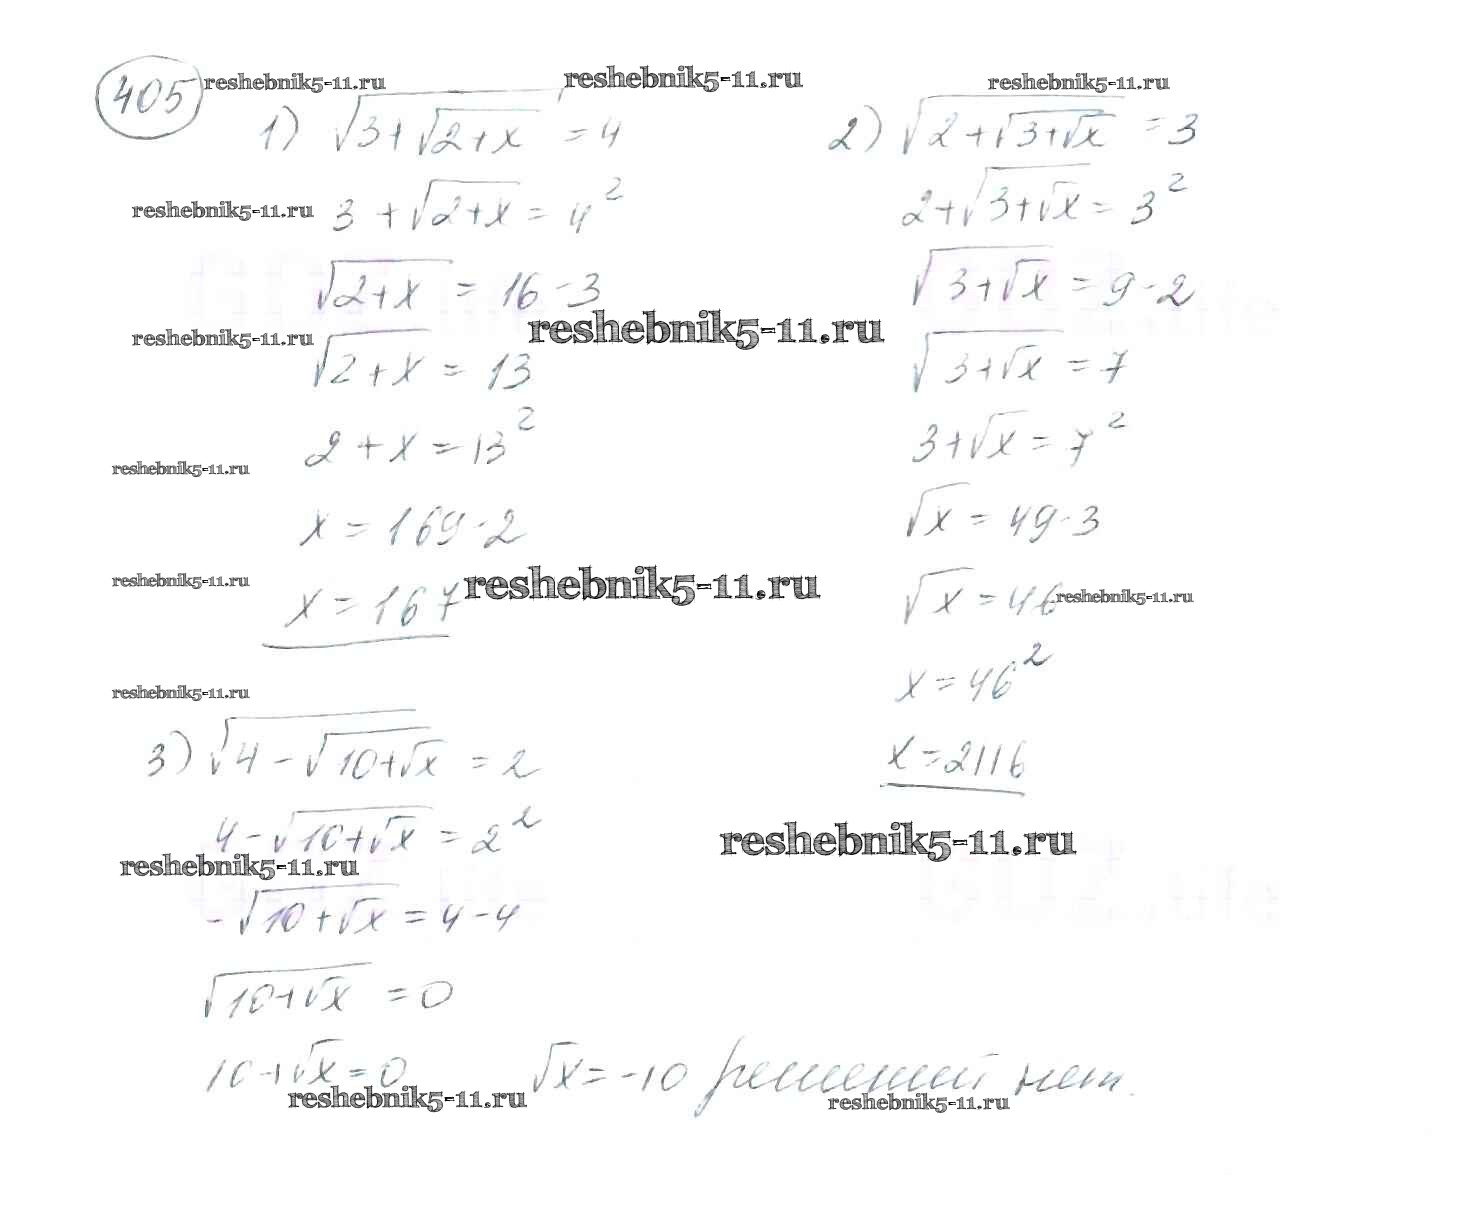 405
reshebnik5-11.ru reshebnik5-11.ru reshebnik5-11.ru
1) √(3+√(2+x)) = 4
2) √(2+√(3+√x)) = 3
reshebnik5-11.ru
3 + √(2+x) = 4²
2+√(3+√x) = 3²
√(2+x) = 16-3
√(3+√x) = 9-2
reshebnik5-11.ru reshebnik5-11.ru
√(2+x) = 13
√(3+√x) = 7
2 + x = 13²
3+√x = 7²
reshebnik5-11.ru
x = 169-2
√x = 49-3
reshebnik5-11.ru reshebnik5-11.ru
x = 167
√x = 46
reshebnik5-11.ru
x = 46²
reshebnik5-11.ru
x = 2116
3) √(4-√(10+√x)) = 2
4-√(10+√x) = 2²
reshebnik5-11.ru reshebnik5-11.ru
-√(10+√x) = 4-4
√(10+√x) = 0
10+√x = 0 √x = -10 решений нет.
reshebnik5-11.ru reshebnik5-11.ru